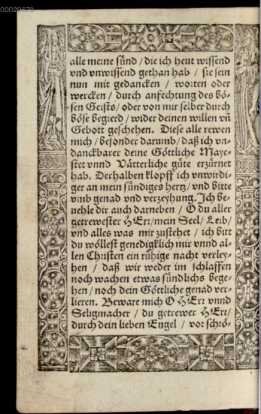 alle meine sünd / die ich heut wissend
vnd vnwissend gethan hab / sie sein
nun mit gedancken / worten oder
wercken / durch anfechtung des bö-
sen Geists / oder von mir selber durch
böse begierd / wider deinen willen vñ
Gebott geschehen. Diese alle rewen
mich / besonder darumb / daß ich vn-
danckbarer deine Göttliche Maye-
stet vnnd Vätterliche güte erzürnet
hab. Derhalben klopff ich vnwirdi-
ger an mein sündiges herg / vnd bitte
vmb genad vnd verzeyhung. Ich be-
uehle dir auch darneben / O du aller
getrewester HErr / mein Seel / Leib /
vnd alles was mir zustehet / ich bitt
du wöllest genedigklich mir vnnd al-
len Christen ein rühige nacht verley-
hen / daß wir weder im schlaffen
noch wachen etwas sündlichs bege-
hen / noch dein Göttliche genad ver-
lieren. Beware mich O HErr vnnd
Seligmacher / du getrewer HErr /
durch dein lieben Engel / vor schrö-